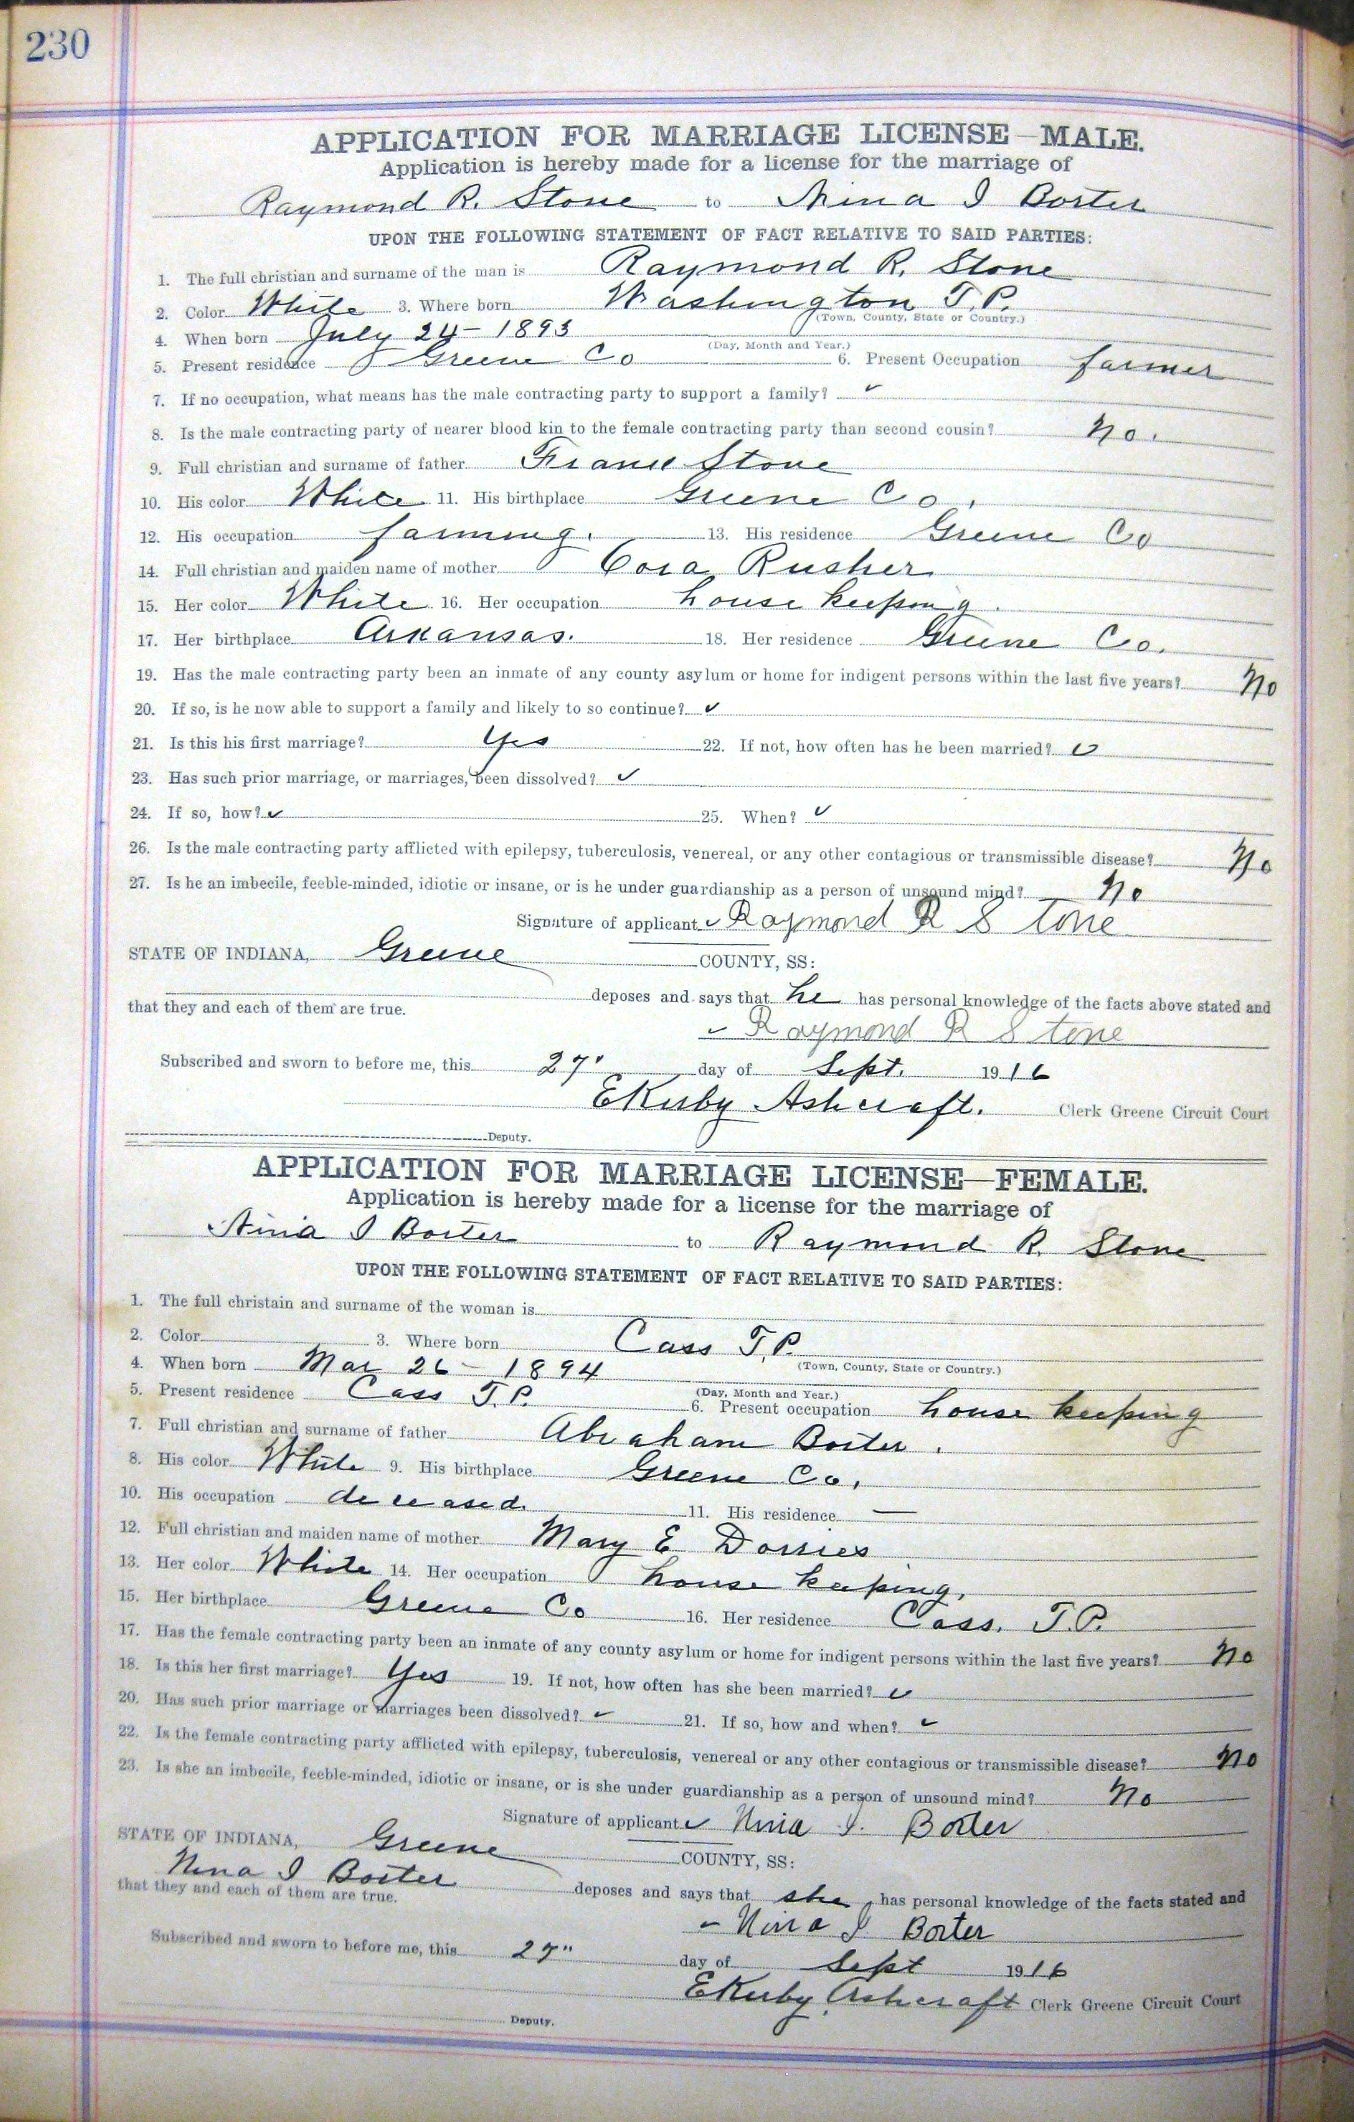 230
APPLICATION FOR MARRIAGE LICENSE—MALE.
Application is hereby made for a license for the marriage of
Raymond R. Stone to Nina I Borter
UPON THE FOLLOWING STATEMENT OF FACT RELATIVE TO SAID PARTIES:
1. The full christian and surname of the man is Raymond R. Stone
2. Color White 3. Where born Washington T.P.
(Town, County, State or Country.)
4. When born July 24 - 1893
(Day, Month and Year.)
5. Present residence Greene Co 6. Present Occupation farmer
7. If no occupation, what means has the male contracting party to support a family? ✓
8. Is the male contracting party of nearer blood kin to the female contracting party than second cousin? No.
9. Full christian and surname of father Frank Stone
10. His color White 11. His birthplace Greene Co.
12. His occupation farming. 13. His residence Greene Co
14. Full christian and maiden name of mother Cora Rusher
15. Her color White 16. Her occupation house keeping.
17. Her birthplace Arkansas. 18. Her residence Greene Co.
19. Has the male contracting party been an inmate of any county asylum or home for indigent persons within the last five years? No
20. If so, is he now able to support a family and likely to so continue? ✓
21. Is this his first marriage? Yes 22. If not, how often has he been married? ✓
23. Has such prior marriage, or marriages, been dissolved? ✓
24. If so, how? ✓ 25. When? ✓
26. Is the male contracting party afflicted with epilepsy, tuberculosis, venereal, or any other contagious or transmissible disease? No
27. Is he an imbecile, feeble-minded, idiotic or insane, or is he under guardianship as a person of unsound mind? No
Signature of applicant ✓ Raymond R Stone
STATE OF INDIANA, Greene COUNTY, SS:
deposes and says that he has personal knowledge of the facts above stated and
that they and each of them are true.
✓ Raymond R Stone
Subscribed and sworn to before me, this 27" day of Sept. 1916
E Kirby Ashcraft. Clerk Greene Circuit Court
Deputy.
APPLICATION FOR MARRIAGE LICENSE—FEMALE.
Application is hereby made for a license for the marriage of
Nina I Borter to Raymond R. Stone
UPON THE FOLLOWING STATEMENT OF FACT RELATIVE TO SAID PARTIES:
1. The full christain and surname of the woman is
2. Color 3. Where born Cass T.P.
(Town, County, State or Country.)
4. When born Mar 26 - 1894
(Day, Month and Year.)
5. Present residence Cass T.P. 6. Present occupation house keeping
7. Full christian and surname of father Abraham Borter.
8. His color White 9. His birthplace Greene Co.
10. His occupation deceased. 11. His residence —
12. Full christian and maiden name of mother Mary E Dorries
13. Her color White 14. Her occupation house keeping.
15. Her birthplace Greene Co 16. Her residence Cass. T.P.
17. Has the female contracting party been an inmate of any county asylum or home for indigent persons within the last five years? No
18. Is this her first marriage? Yes 19. If not, how often has she been married? ✓
20. Has such prior marriage or marriages been dissolved? ✓ 21. If so, how and when? ✓
22. Is the female contracting party afflicted with epilepsy, tuberculosis, venereal or any other contagious or transmissible disease? No
23. Is she an imbecile, feeble-minded, idiotic or insane, or is she under guardianship as a person of unsound mind? No
Signature of applicant ✓ Nina I. Borter
STATE OF INDIANA, Greene COUNTY, SS:
Nina I Borter deposes and says that she has personal knowledge of the facts stated and
that they and each of them are true.
✓ Nina I Borter
Subscribed and sworn to before me, this 27" day of Sept 1916
E Kirby Ashcraft Clerk Greene Circuit Court
Deputy.